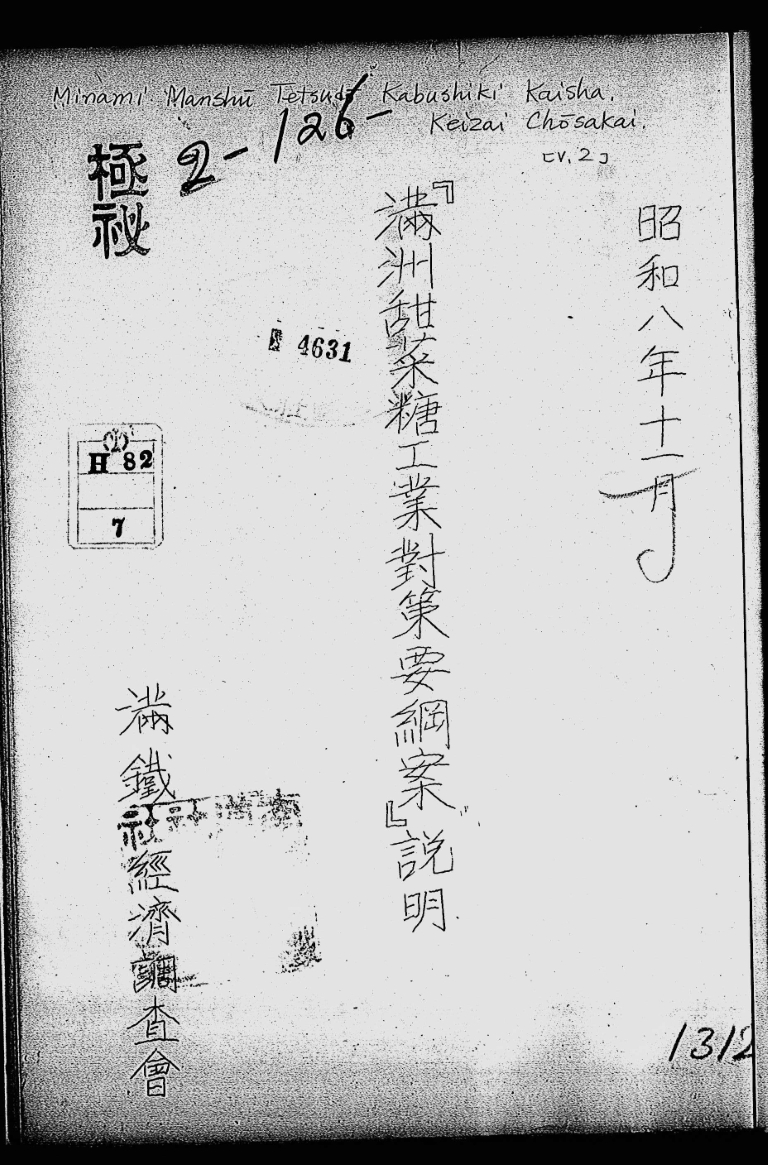 Minami Manshū Tetsudō Kabushiki Kaisha.
Keizai Chōsakai.
[V. 2]
2-126-
極祕
昭和八年十一月
『滿洲甜菜糖工業對策要綱案』説明
4631
H 82
7
滿鐵經濟調査會
1312